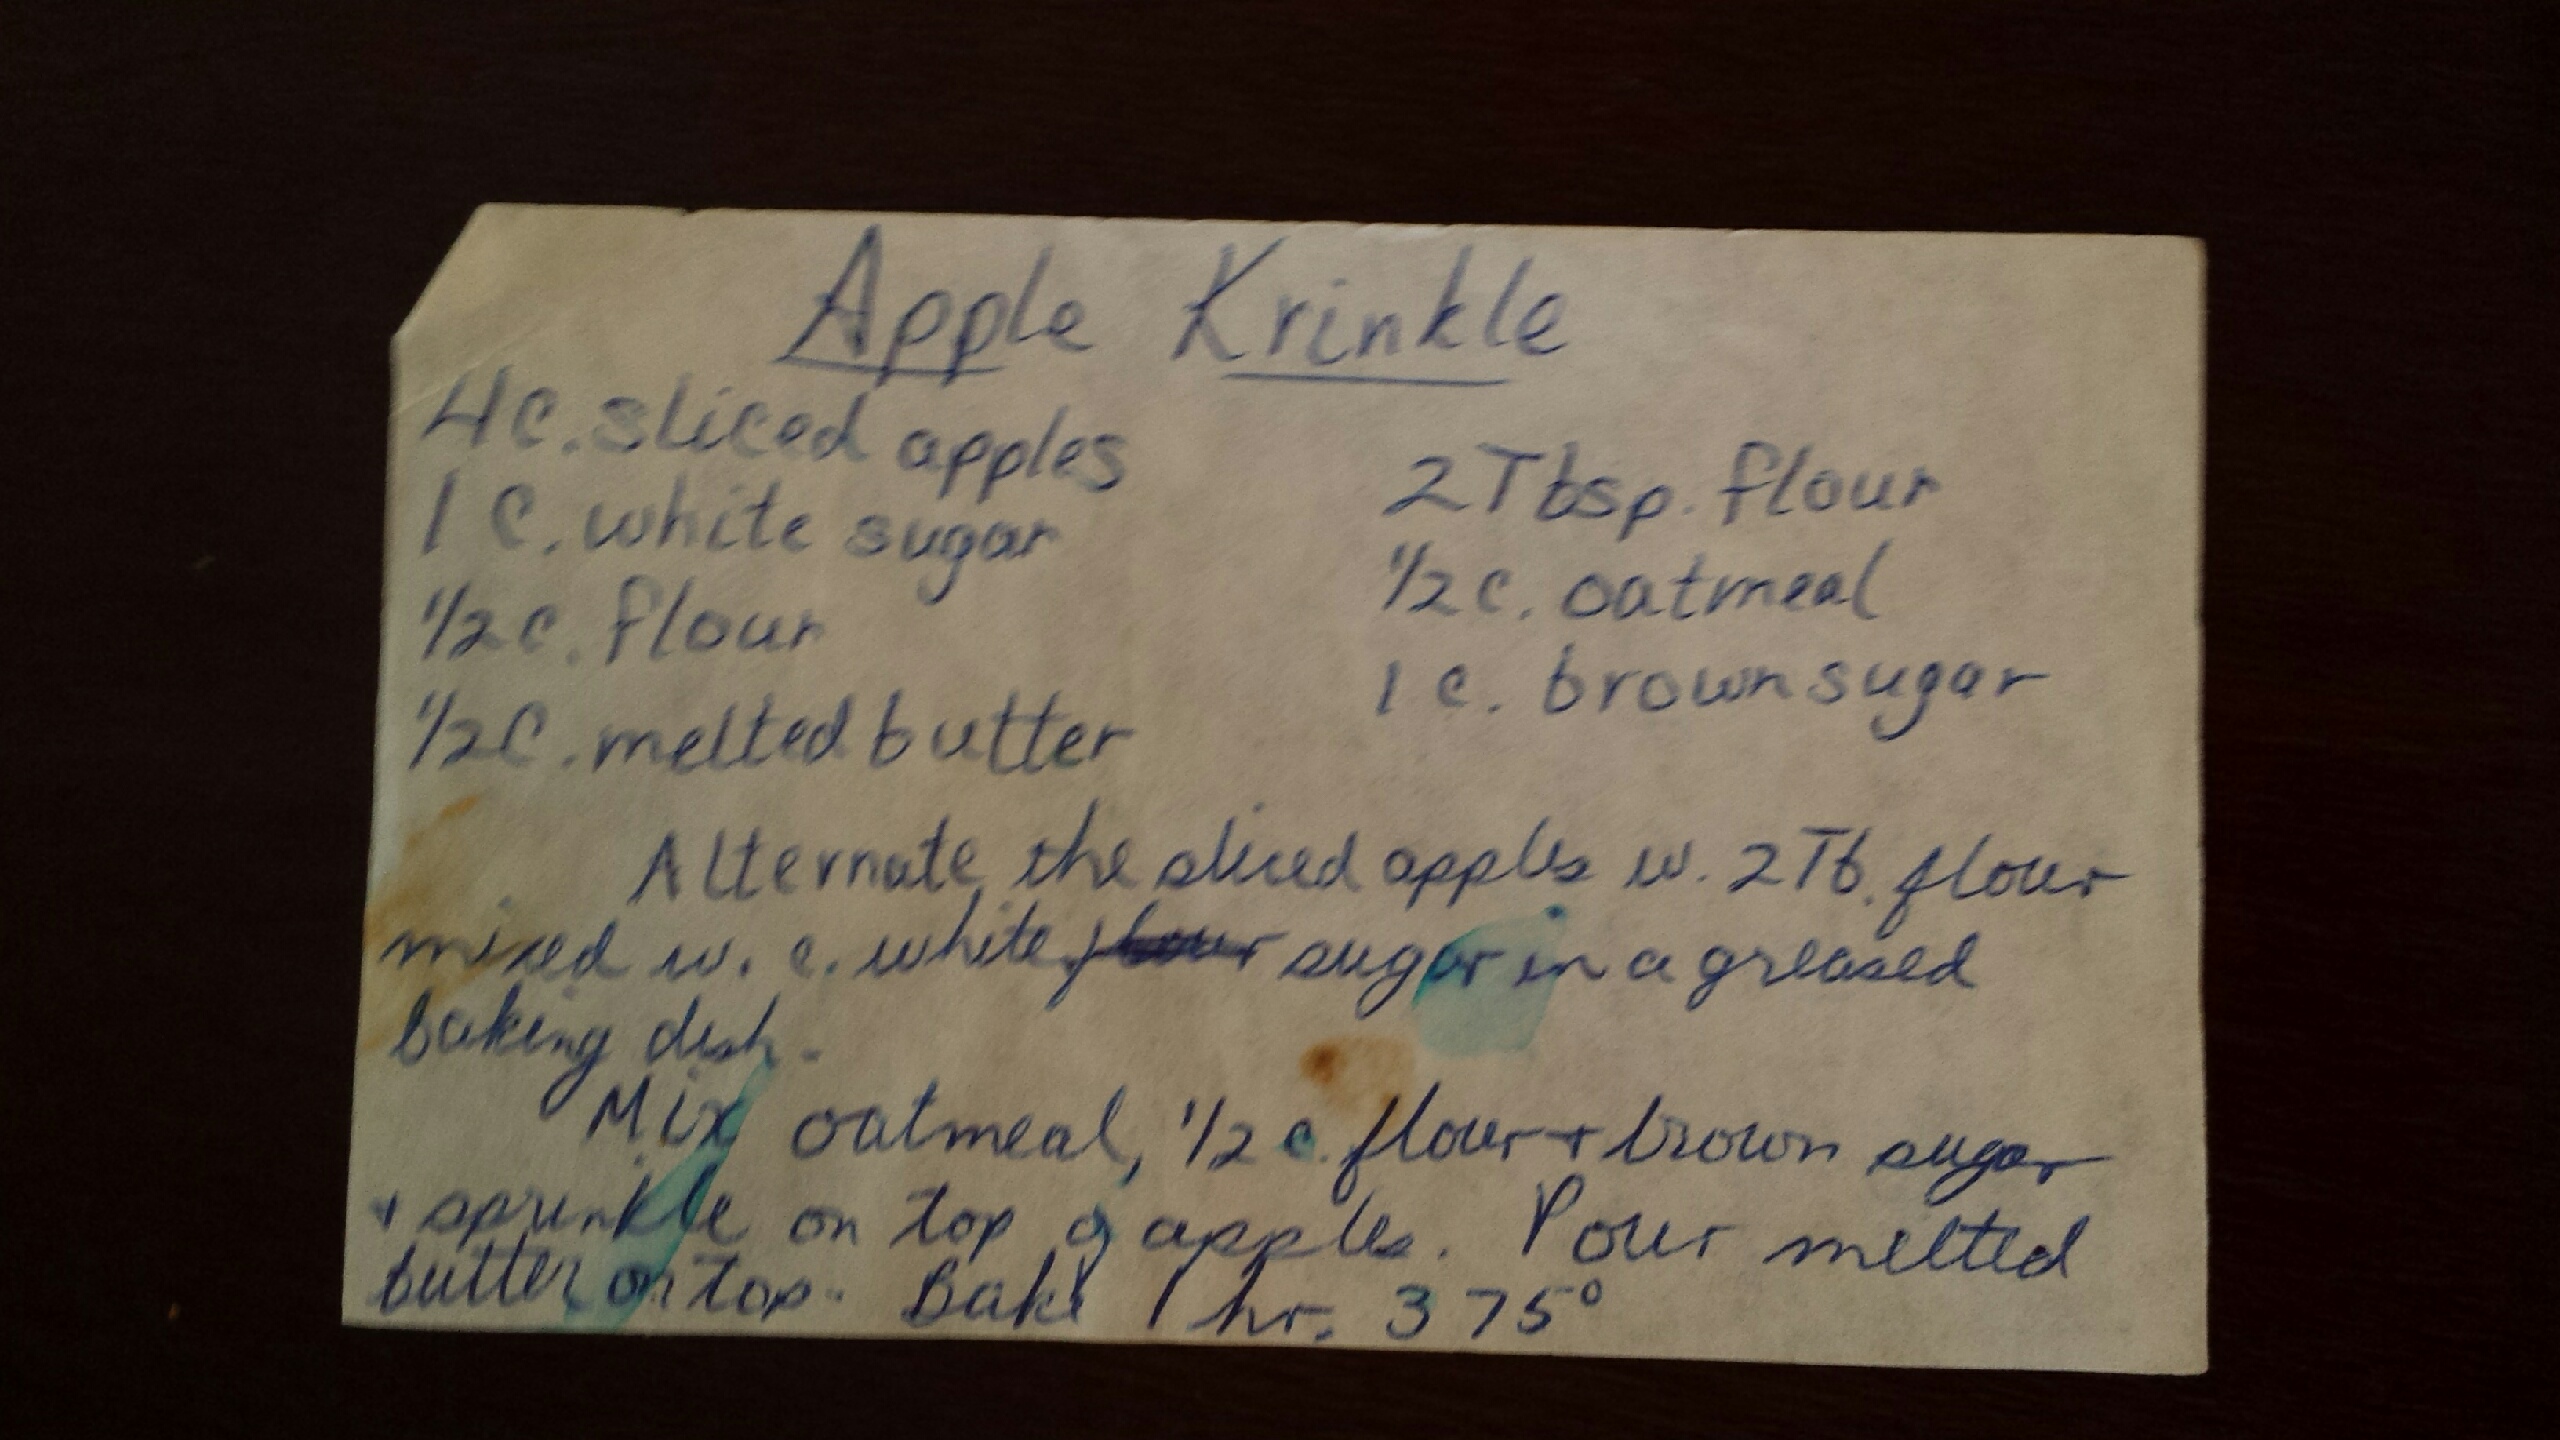 Apple Krinkle
4 c. sliced apples
1 c. white sugar
1/2 c. flour
1/2 c. melted butter
2 Tbsp. flour
1/2 c. oatmeal
1 c. brown sugar
Alternate the sliced apples w. 2 Tb. flour
mixed w. c. white flour sugar in a greased
baking dish.
Mix oatmeal, 1/2 c. flour + brown sugar
+ sprinkle on top of apples. Pour melted
butter on top. Bake 1 hr. 375°